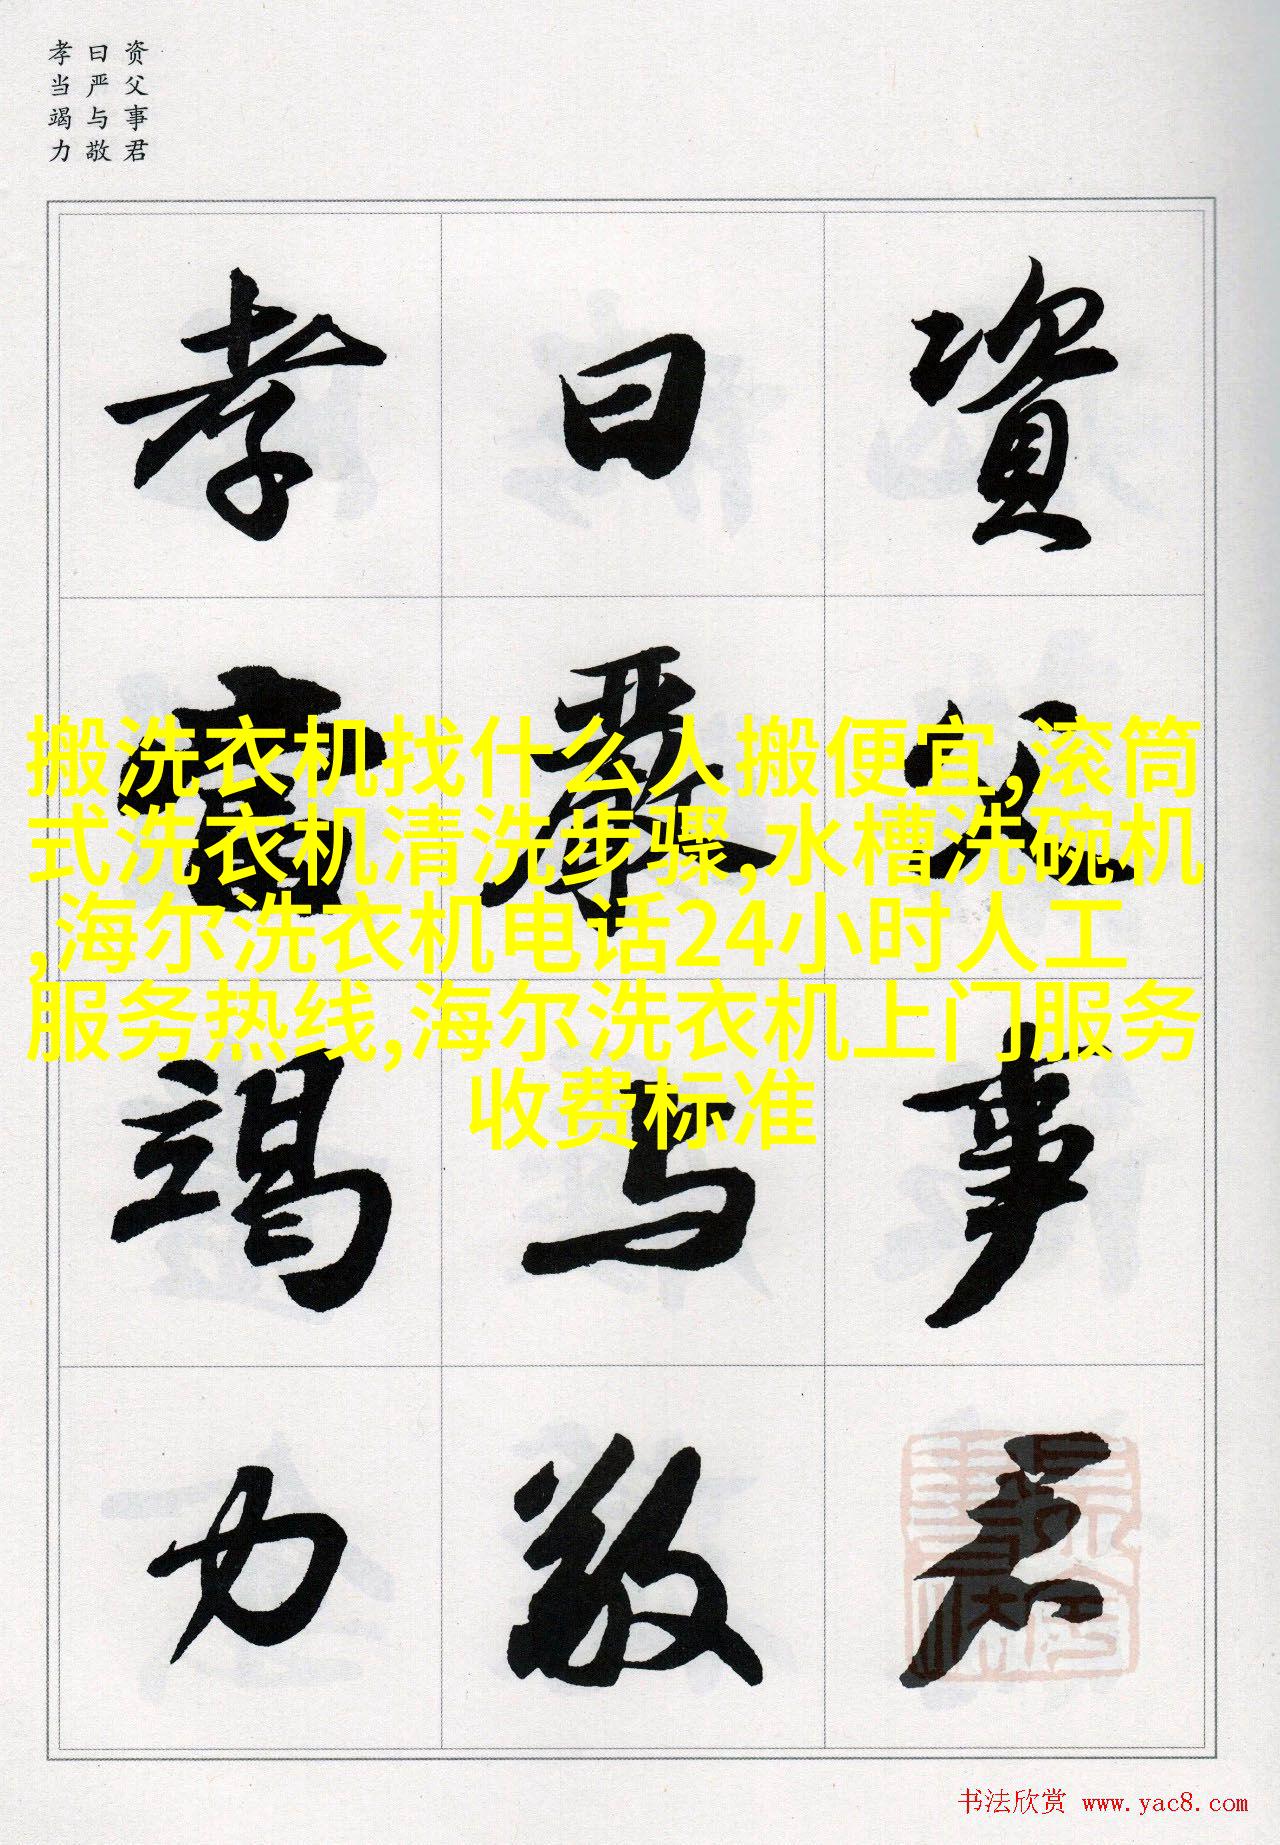 资父事君
曰严与敬
孝当竭力
資父事君
曰嚴与敬
孝當竭力
搬洗衣机找什么人搬便宜,滚筒
式洗衣机清洗步骤,水槽洗碗机
,海尔洗衣机电话24小时人工
服务热线,海尔洗衣机上门服务
收费标准
书法欣赏 www.yac8.com